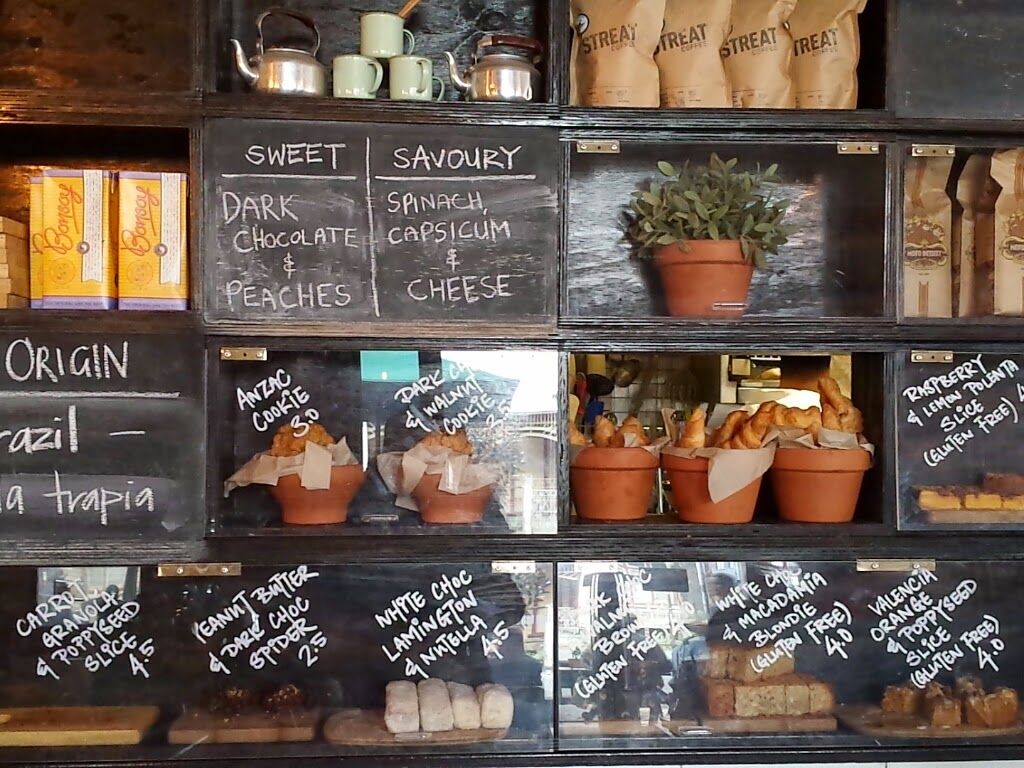 STREAT
COFFEE
TREAT
COFFEE
STREAT
COFFEE
TREAT
COFFEE
Bonsoy
Bonsoy
SWEET
DARK
CHOCOLATE
&
PEACHES
SAVOURY
SPINACH,
CAPSICUM
&
CHEESE
ORIGIN
razil –
a trapia
ANZAC
COOKIE
3.0
DARK
& WALNUT
COOKIE
3.5
RASPBERRY
& LEMON POLENTA
SLICE
(GLUTEN FREE)
CARROT
GRANOLA
& POPPYSEED
SLICE
4.5
PEANUT BUTTER
& DARK CHOC
SPIDER
2.5
WHITE CHOC
LAMINGTON
& NUTELLA
4.5
(GLUTEN FREE)
WHITE
& MACADAMIA
BLONDIE
(GLUTEN FREE)
4.0
VALENCIA
ORANGE
& POPPYSEED
SLICE
(GLUTEN FREE)
4.0